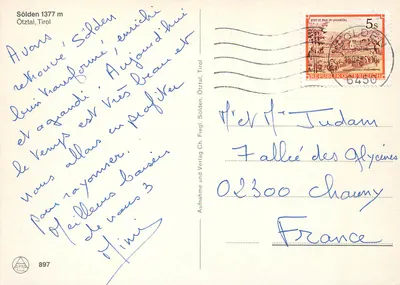 Sölden 1377 m
Ötztal, Tirol
Avons
retrouvé, Sölden
bien transformé, enrichi
et agrandi. Aujourd'hui
le temps est très beau et
nous allons en profiter
pour rayonner.
Meilleurs baisers
de nous 3
Mimi
897
Aufnahme und Verlag Ch. Fiegl, Sölden, Ötztal, Tirol
5s
REPUBLIK ÖSTERREICH
6450
Mr et Me Judam
7 allée des Glycines
02300 Chauny
France